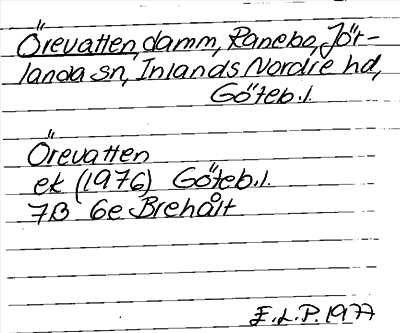 Örevatten, damm, Ranebo, Jör-
landa sn, Inlands Nordre hd,
Göteb.l.
Örevatten
ek (1976) Göteb.l.
7B 6e Brehålt
E.L.P. 1977